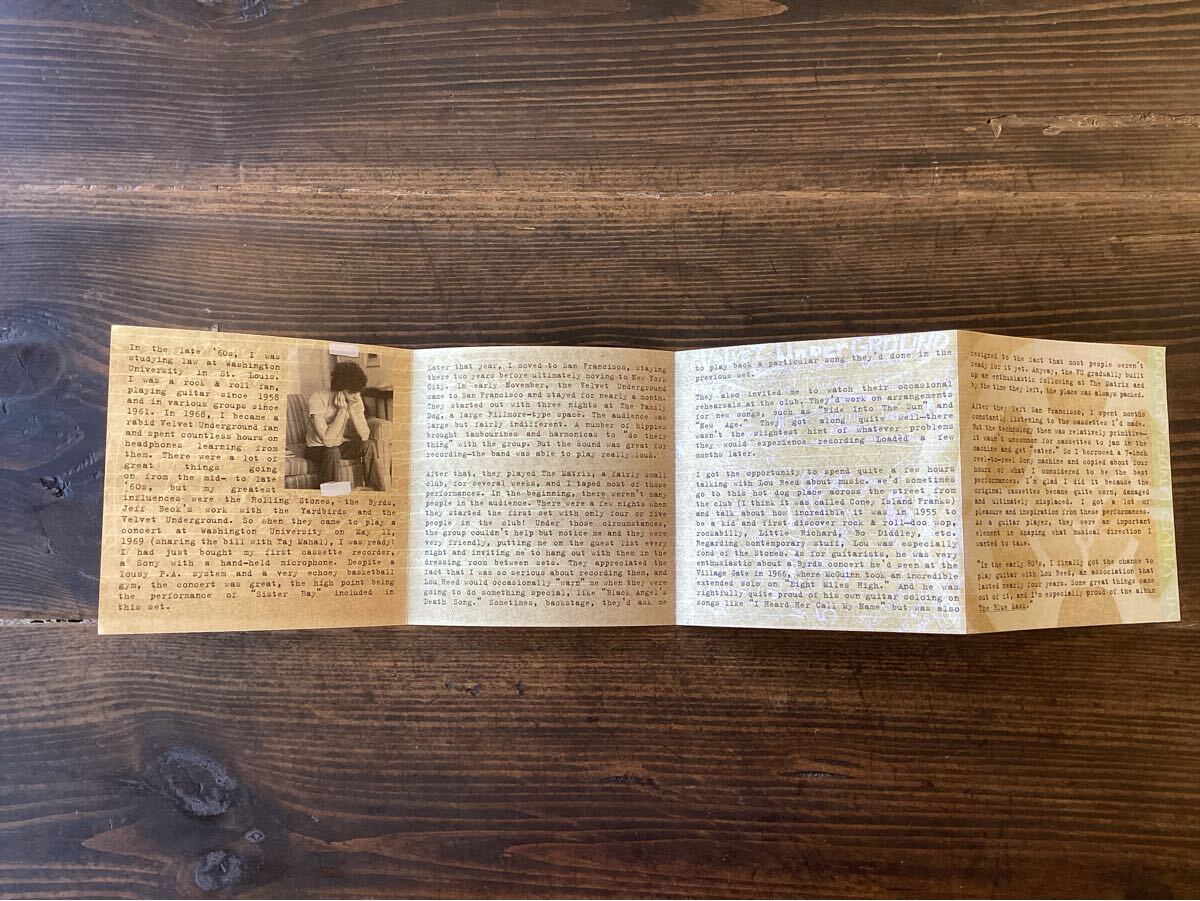 In the late '60s, I was
studying law at Washington
University in St. Louis.
I was a rock & roll fan,
playing guitar since 1958
and in various groups since
1961. In 1968, I became a
rabid Velvet Underground fan
and spent countless hours on
headphones learning from
them. There were a lot of
great things going
on from the mid- to late
'60s, but my greatest
influences were the Rolling Stones, the Byrds,
Jeff Beck's work with the Yardbirds and the
Velvet Underground. So when they came to play a
concert at Washington University on May 11,
1969 (sharing the bill with Taj Mahal), I was ready.
I had just bought my first cassette recorder,
a Sony with a hand-held microphone. Despite a
lousy P.A. system and a very echoey basketball
gym, the concert was great, the high point being
the performance of "Sister Ray" included in
this set.
Later that year, I moved to San Francisco, staying
there two years before ultimately moving to New York
City. In early November, the Velvet Underground
came to San Francisco and stayed for nearly a month.
They started out with three nights at The Family
Dog, a large Fillmore-type space. The audience was
large but fairly indifferent. A number of hippies
brought tambourines and harmonicas to "do their
thing" with the group. But the sound was great for
recording—the band was able to play really loud.
After that, they played The Matrix, a fairly small
club, for several weeks, and I taped most of those
performances. In the beginning, there weren't many
people in the audience. There were a few nights when
they started the first set with only four or five
people in the club! Under those circumstances,
the group couldn't help but notice me and they were
very friendly, putting me on the guest list every
night and inviting me to hang out with them in the
dressing room between sets. They appreciated the
fact that I was so serious about recording them, and
Lou Reed would occasionally "warn" me when they were
going to do something special, like "Black Angel's
Death Song." Sometimes, backstage, they'd ask me
UNDERGROUND
to play back a particular song they'd done in the
previous set.
They also invited me to watch their occasional
rehearsals at the club. They'd work on arrangements
for new songs, such as "Ride Into The Sun" and
"New Age." They got along quite well—there
wasn't the slightest hint of whatever problems
they would experience recording Loaded a few
months later.
I got the opportunity to spend quite a few hours
talking with Lou Reed about music. We'd sometimes
go to this hot dog place across the street from
the club (I think it was called Coney Island Franks)
and talk about how incredible it was in 1955 to
be a kid and first discover rock & roll—doo wop,
rockabilly, Little Richard, Bo Diddley, etc.
Regarding contemporary stuff, Lou was especially
fond of the Stones. As for guitarists, he was very
enthusiastic about a Byrds concert he'd seen at the
Village Gate in 1966, where McGuinn took an incredible
extended solo on "Eight Miles High." And he was
rightfully quite proud of his own guitar soloing on
songs like "I Heard Her Call My Name" but was also
resigned to the fact that most people weren't
ready for it yet. Anyway, the VU gradually built
up an enthusiastic following at The Matrix and
by the time they left, the place was always packed.
After they left San Francisco, I spent months
constantly listening to the cassettes I'd made.
But the technology then was relatively primitive—
it wasn't uncommon for cassettes to jam in the
machine and get "eaten." So I borrowed a 7-inch
reel-to-reel Sony machine and copied about four
hours of what I considered to be the best
performances. I'm glad I did it because the
original cassettes became quite worn, damaged
and ultimately misplaced. I got a lot of
pleasure and inspiration from these performances.
As a guitar player, they were an important
element in shaping what musical direction I
wanted to take.
"In the early 80's, I finally got the chance to
play guitar with Lou Reed, an association that
lasted nearly four years. Some great things came
out of it, and I'm especially proud of the album
The Blue Mask."